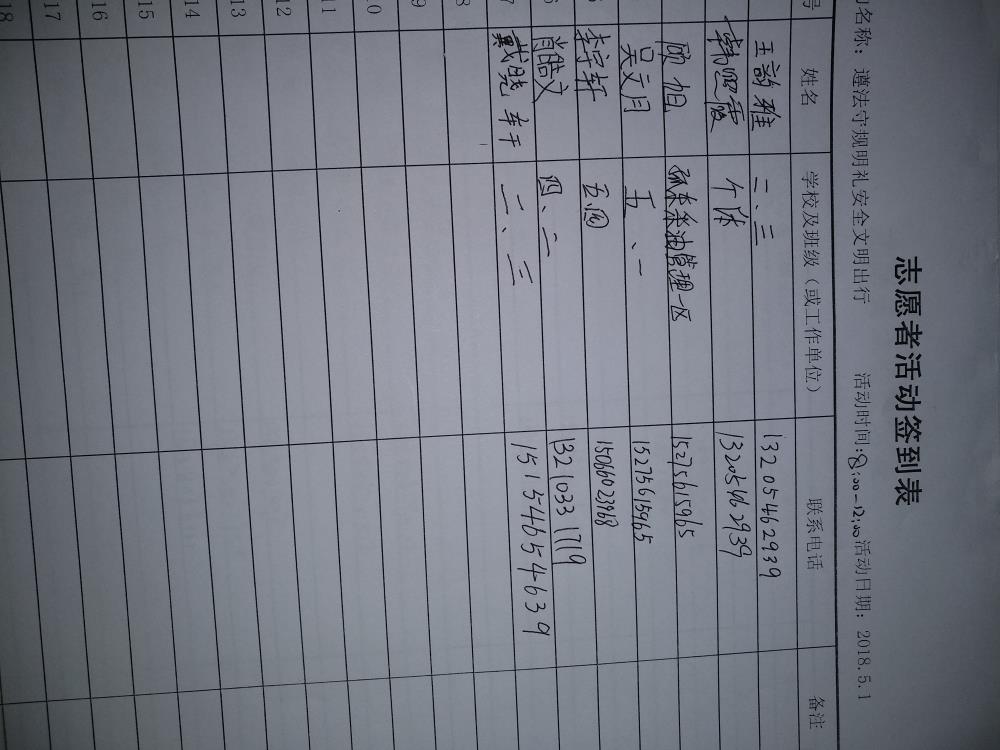 志愿者活动签到表
名称：遵法守规明礼安全文明出行 活动时间：8:00-12:00 活动日期：2018.5.1
号 姓名 学校及班级（或工作单位） 联系电话 备注
王韵雅 二、三 13205462939
韩照霞 个体 13205462939
顾旭 孤东采油管理一区 15275615965
吴文月 五、一 15275615965
李宇轩 五四 15066023968
6 肖皓文 四、二 13210331719
7 戴晓轩 二、三 15154654639
8
9
10
11
12
13
14
15
16
17
18